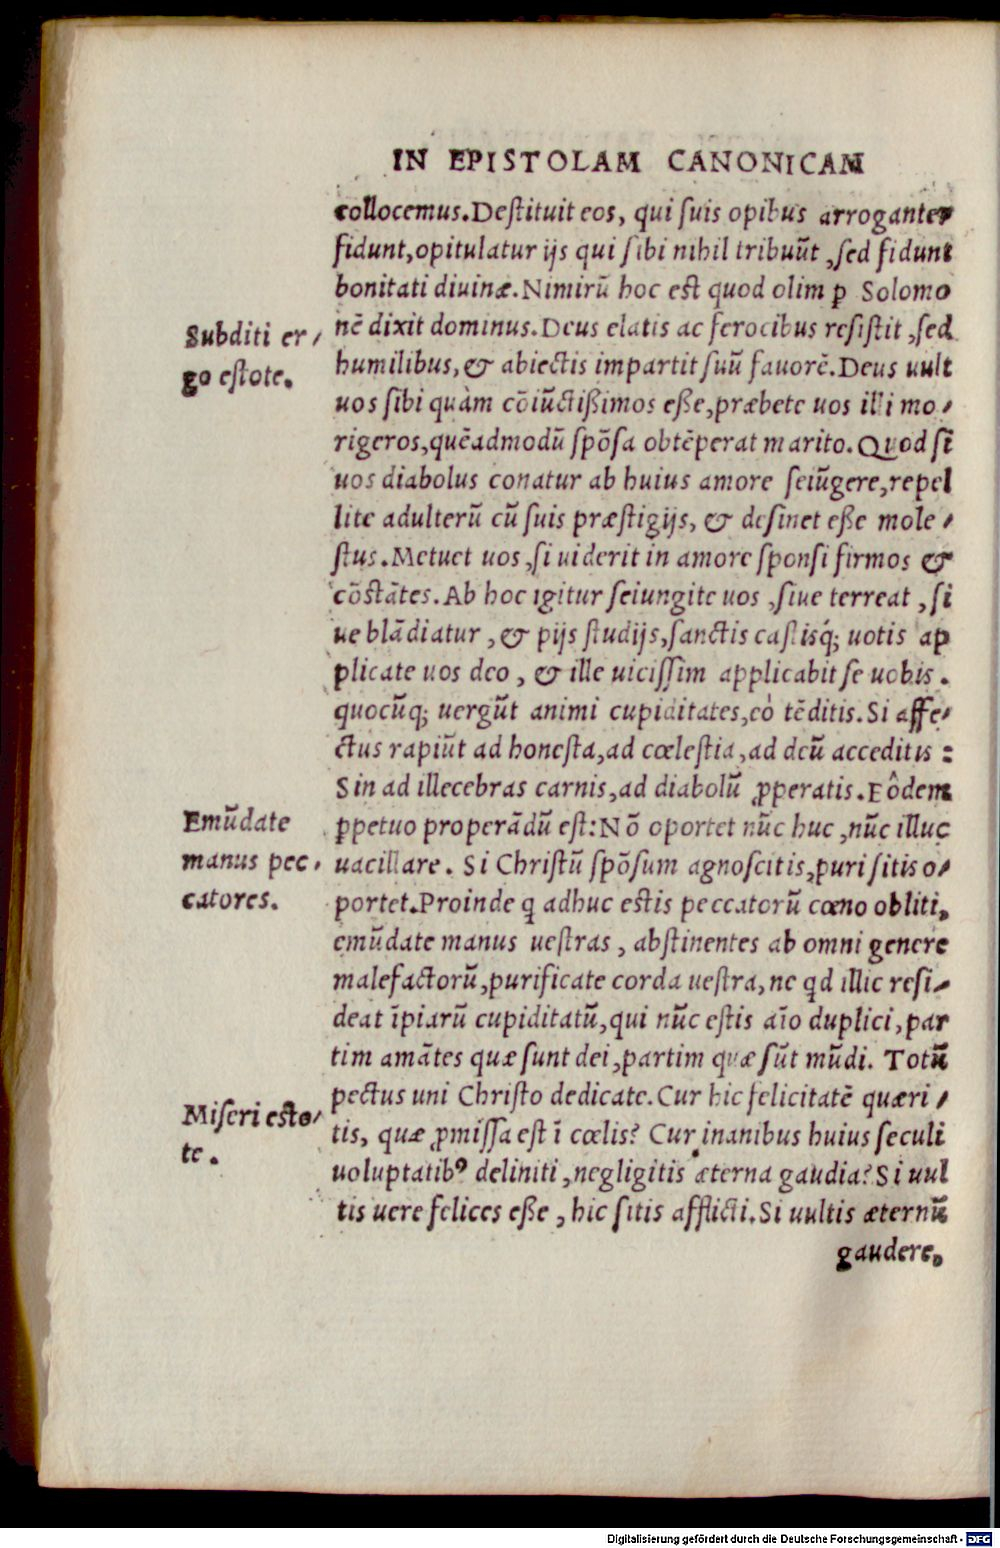 IN EPISTOLAM CANONICAM
collocemus. Destituit eos, qui suis opibus arroganter
fidunt, opitulatur ijs qui sibi nihil tribuūt, sed fidunt
bonitati diuinæ. Nimirū hoc est quod olim p̱ Solomo
nē dixit dominus. Deus elatis ac ferocibus resistit, sed
Subditi er/
go estote.
humilibus, & abiectis impartit suū fauorē. Deus uult
uos sibi quàm cōiūctißimos eße, præbete uos illi mo/
rigeros, quēadmodū spōsa obtēperat marito. Quod si
uos diabolus conatur ab huius amore seiūgere, repel
lite adulterū cū suis præstigijs, & desinet eße mole/
stus. Metuet uos, si uiderit in amore sponsi firmos &
cōstātes. Ab hoc igitur seiungite uos, siue terreat, si
ue blādiatur, & pijs studijs, sanctis castisq́; uotis ap
plicate uos deo, & ille uicissim applicabit se uobis.
quocūq; uergūt animi cupiditates, eò tēditis. Si affe/
ctus rapiūt ad honesta, ad cœlestia, ad deū acceditis:
Sin ad illecebras carnis, ad diabolū ꝓperatis. Eôdem
Emūdate
manus pec/
catores.
p̱petuo properādū est: Nō oportet nūc huc, nūc illuc
uacillare. Si Christū spōsum agnoscitis, puri sitis o/
portet. Proinde q̱ adhuc estis peccatorū cœno obliti,
emūdate manus uestras, abstinentes ab omni genere
malefactorū, purificate corda uestra, ne q̱d illic resi/
deat īpiarū cupiditatū, qui nūc estis aīo duplici, par
tim amātes quæ sunt dei, partim quæ sūt mūdi. Totū
pectus uni Christo dedicate. Cur hic felicitatē quæri/
Miseri esto/
te.
tis, quæ ꝓmissa est ī cœlis? Cur inanibus huius seculi
uoluptatibꝰ deliniti, negligitis æterna gaudia? Si uul
tis uere felices eße, hic sitis afflicti. Si uultis æternū
gaudere,
Digitalisierung gefördert durch die Deutsche Forschungsgemeinschaft - DFG